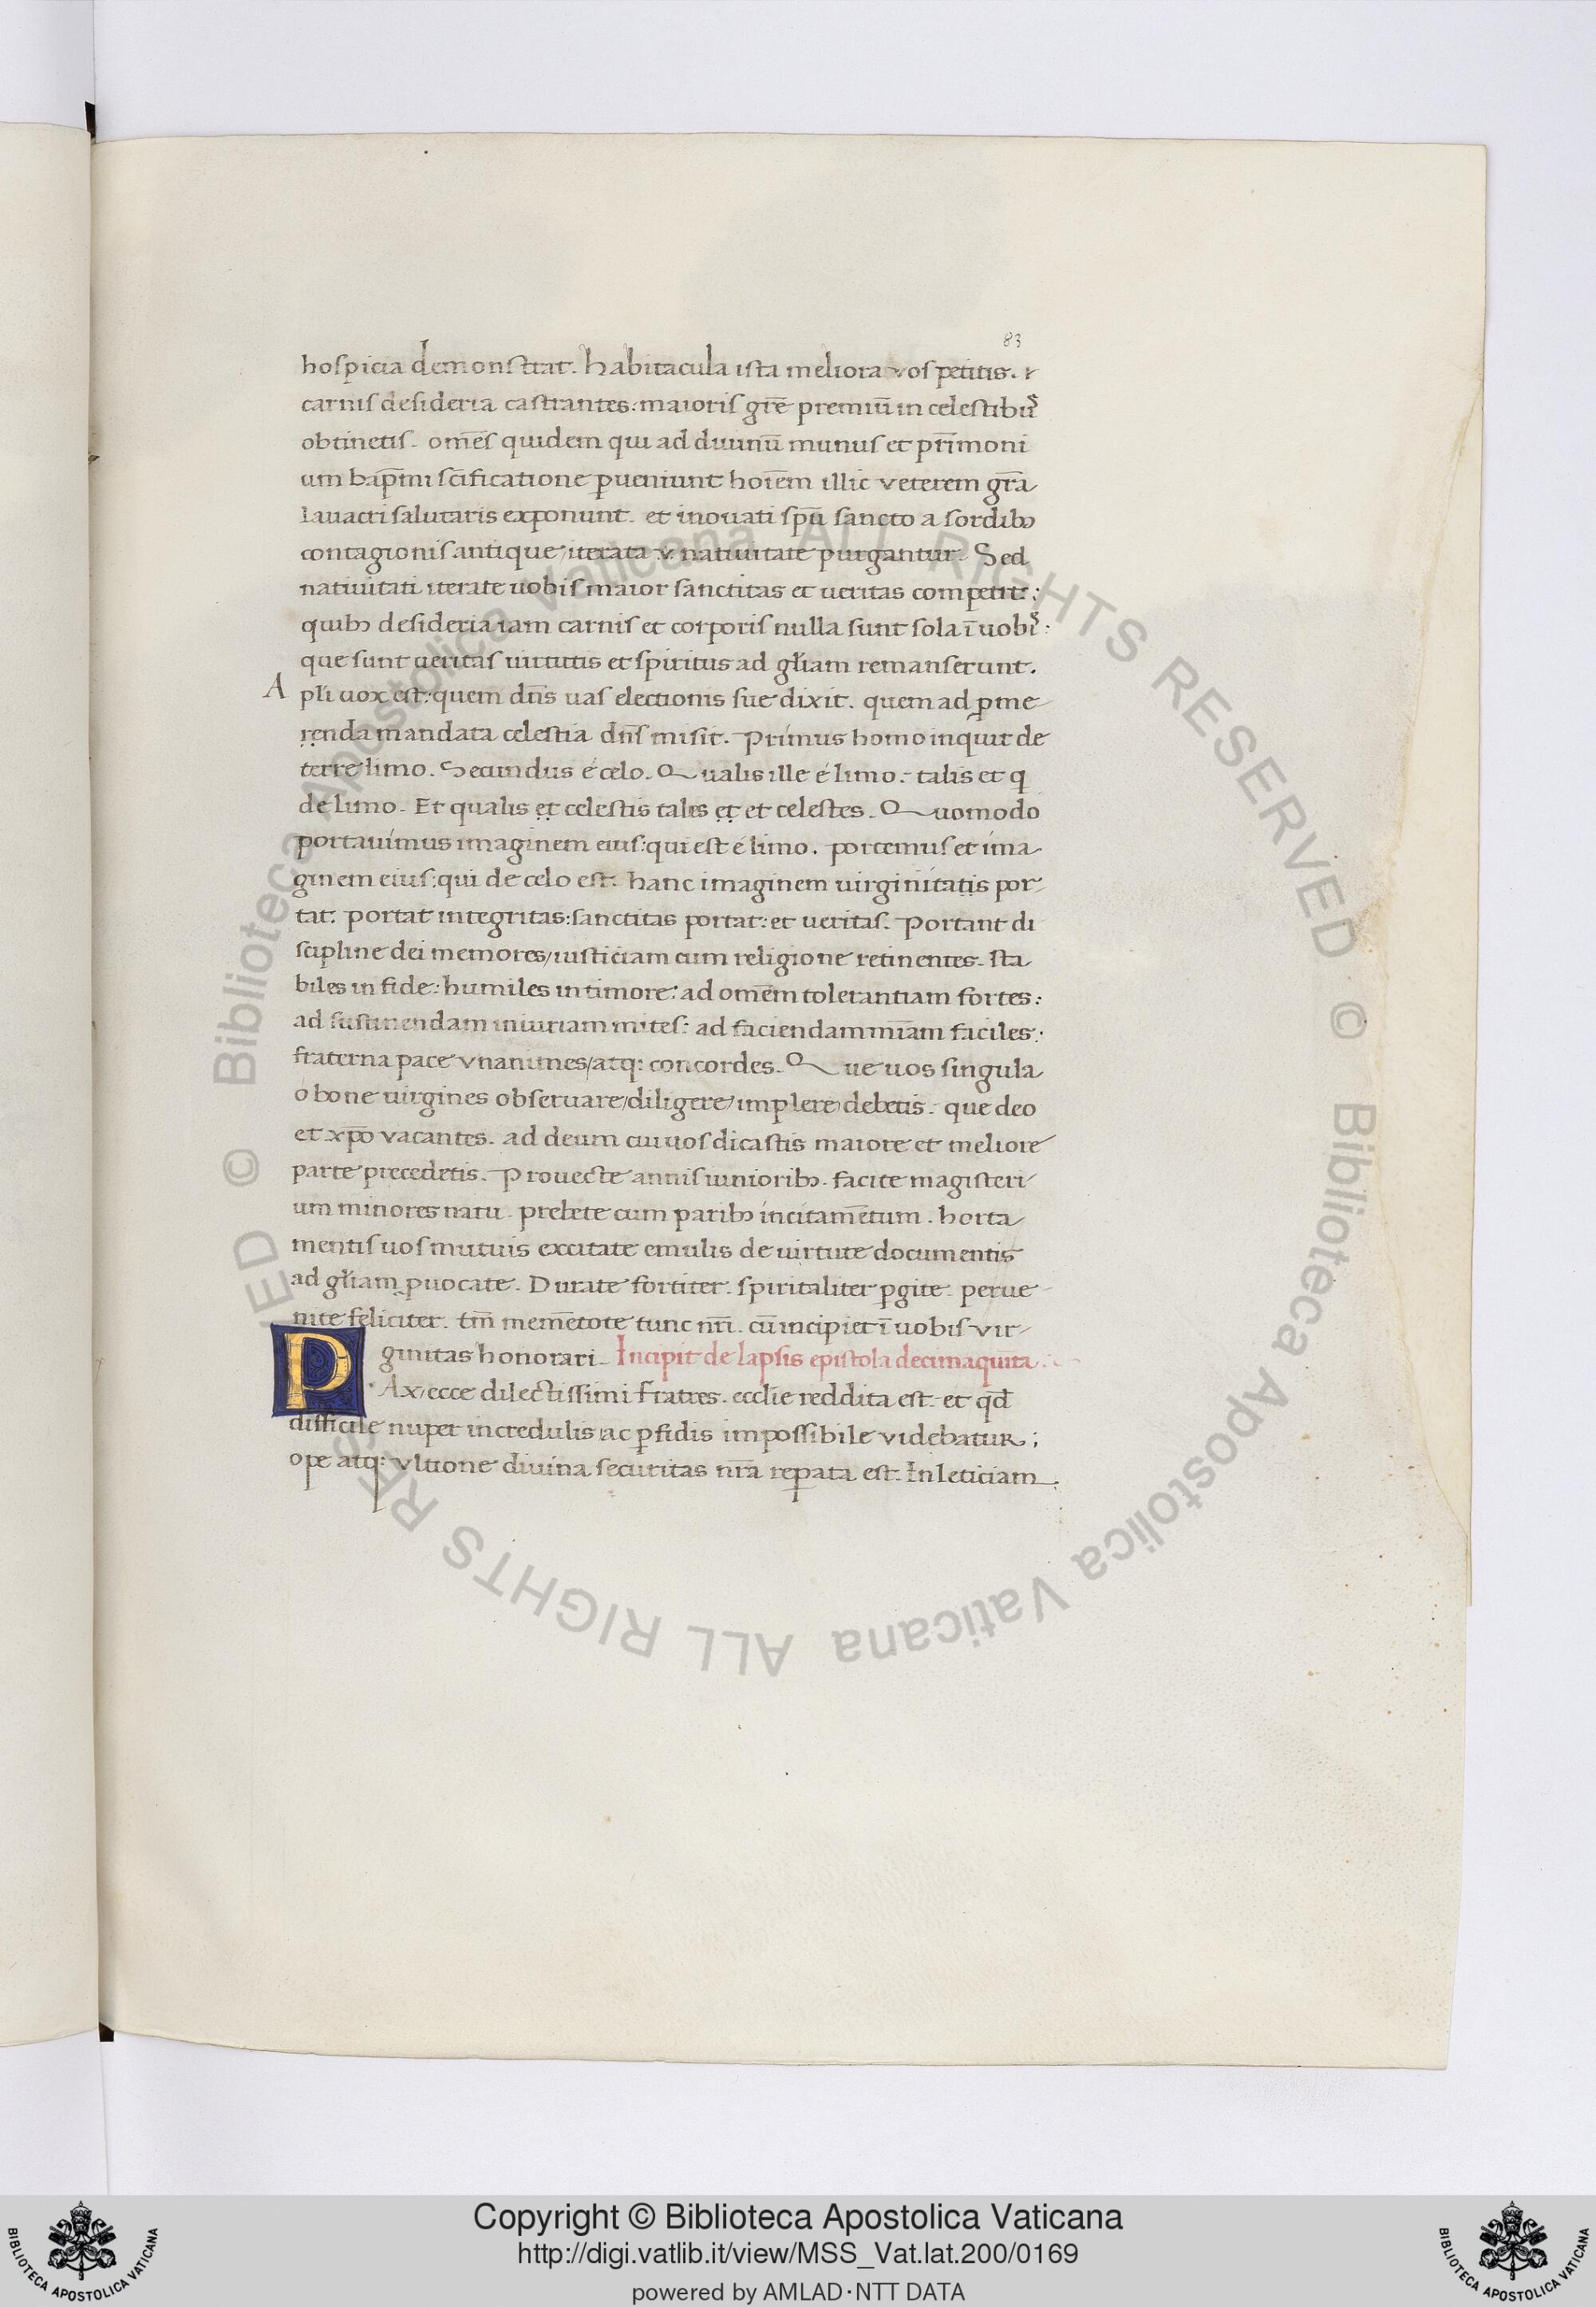 83
hospicia demonstrat. habitacula ista meliora vos petitis. &
carnis desideria castrantes: maioris grē premiū in celestibus
obtinetis. omēs quidem qui ad diuinū munus et pr̄imoni
um bap̄mi sc̄ificatione ꝑueniunt hoīem illic veterem gr̄a
lauacri salutaris exponunt. et inouati sp̄u sancto a sordibꝫ
contagionis antique iterata v nativitate purgantur. Sed
nativitati iterate uobis maior sanctitas et veritas competit:
quibꝫ desideria iam carnis et corporis nulla sunt sola ī uobis:
que sunt veritas virtutis et spiritus ad gl̄iam remanserunt.
A pl̄i vox est: quem dn̄s vas electionis sue dixit. quem ad ꝓme
renda mandata celestia dn̄s misit. Primus homo inquit de
terre limo. Secundus é celo. Qualis ille é limo: talis et q
de limo. Et qualis et celestis tales et et celestes. Quomodo
portauimus imaginem eius: qui est é limo. portemus et ima
ginem eius: qui de celo est. hanc imaginem virginitatis por
tat. portat integritas: sanctitas portat: et veritas. Portant di
scipline dei memores/ iusticiam cum religione retinentes. sta
biles in fide: humiles in timore: ad omēm tolerantiam fortes:
ad sustinendam iniuriam mites: ad faciendam mīam faciles:
fraterna pace vnanimes/ atq: concordes. Que uos singula
o bone virgines observare/ diligere/ implere debetis. que deo
et xp̄o vacantes. ad deum cui uos dicastis maiore et meliore
parte precedetis. Provecte annis iunioribꝫ. facite magisteri
um minores natu. prebete cum paribꝫ incitamētum. horta
mentis uos mutuis excitate emulis de virtute documentis
ad gl̄iam ꝓuocate. Durate fortiter. spiritaliter ꝑgite. perue
nite feliciter. tm̄ memētote tunc nr̄i. cū incipiet ī uobis vir
ginitas honorari. Incipit de lapsis epistola decimaquīta.
PAx/ ecce dilectissimi fratres. eccl̄ie reddita est. et qd̄
difficile nuper incredulis ac ꝑfidis impossibile videbatur;
ope atq: vltione divina securitas nr̄a reꝑata est. In leticiam
© Biblioteca Apostolica Vaticana ALL RIGHTS RESERVED © Biblioteca Apostolica Vaticana ALL RIGHTS RESERVED
Copyright © Biblioteca Apostolica Vaticana
http://digi.vatlib.it/view/MSS_Vat.lat.200/0169
powered by AMLAD·NTT DATA
BIBLIOTECA APOSTOLICA VATICANA
BIBLIOTECA APOSTOLICA VATICANA